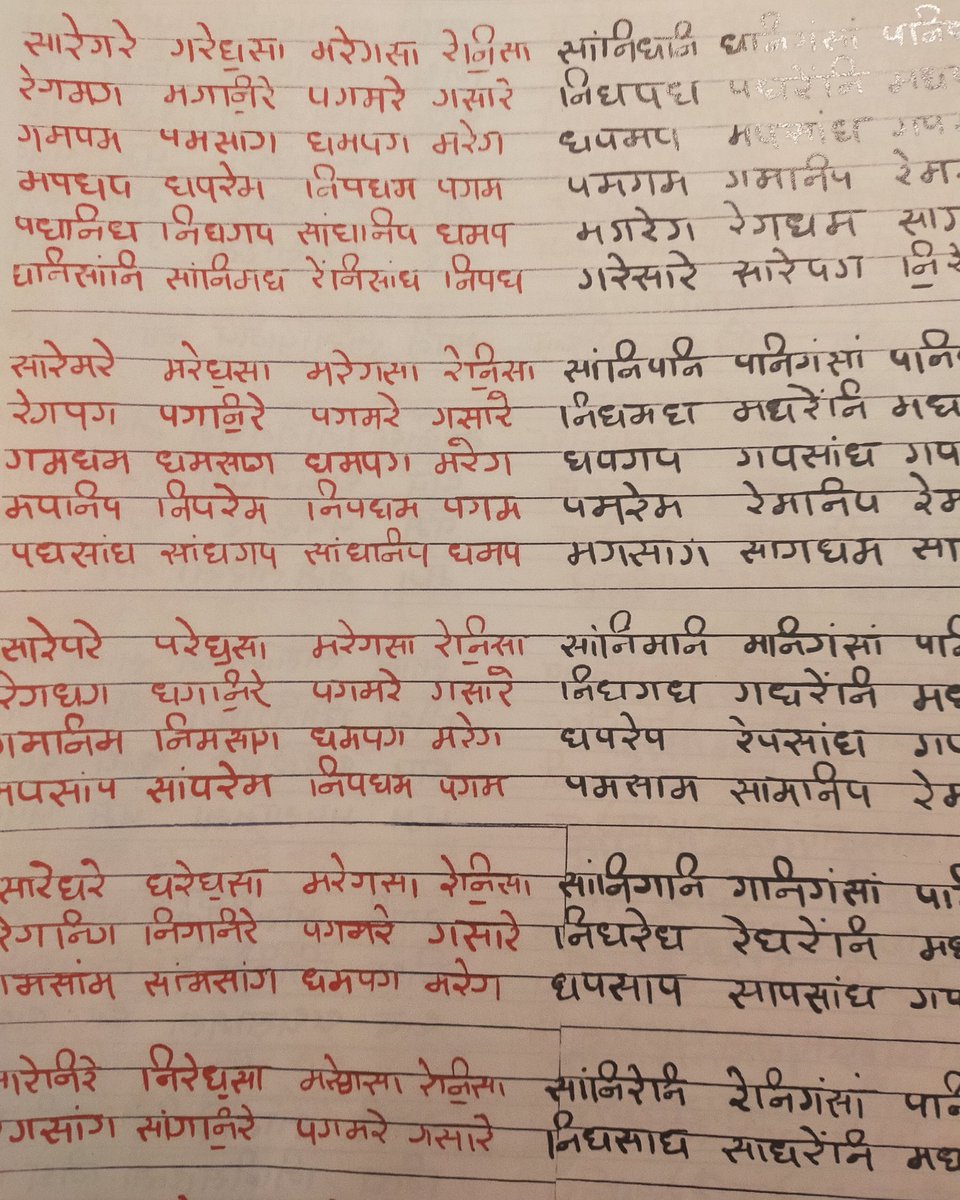 सारेगरे गरेध॒सा मरेगसा रेनि॒सा सांनिधनि
रेगमग मगनि॒रे पगमरे गसारे निधपध
गमपम पमसाग धमपग मरेग धपमप
मपधप धपरेम निपधम पगम पमगम गमनिप
पधनिध निधगप सांधनिप धमप मगरेग रेगधम
धनिसांनि सांनिमध रेंनिसांध निपध गरेसारे सारेपग
सारेमरे मरेध॒सा मरेगसा रेनि॒सा सांनिपनि पनिगंसां
रेगपग पगनि॒रे पगमरे गसारे निधमध मधरेंनि
गमधम धमसाग धमपग मरेग धपगप गपसांध
मपनिप निपरेम निपधम पगम पमरेम रेमनिप
पधसांध सांधगप सांधनिप धमप मगसाग सागधम
सारेपरे परेध॒सा मरेगसा रेनि॒सा सांनिमनि मनिगंसां
रेगधग धगनि॒रे पगमरे गसारे निधगध गधरेंनि
गमनिम निमसाग धमपग मरेग धपरेप रेपसांध
मपसांप सांपरेम निपधम पगम पमसाम सामनिप
सारेधरे धरेध॒सा मरेगसा रेनि॒सा सांनिगनि गनिगंसां
रेगनिग निगनिरे पगमरे गसारे निधरेध रेधरेंनि
गमसांम सांमसांग धमपग मरेग धपसाप सापसांध
सारेनिरे निरेध॒सा मरेगसा रेनि॒सा सांनिरेनि रेनिगंसां
रेगसांग सांगनि॒रे पगमरे गसारे निधसाध साधरेंनि